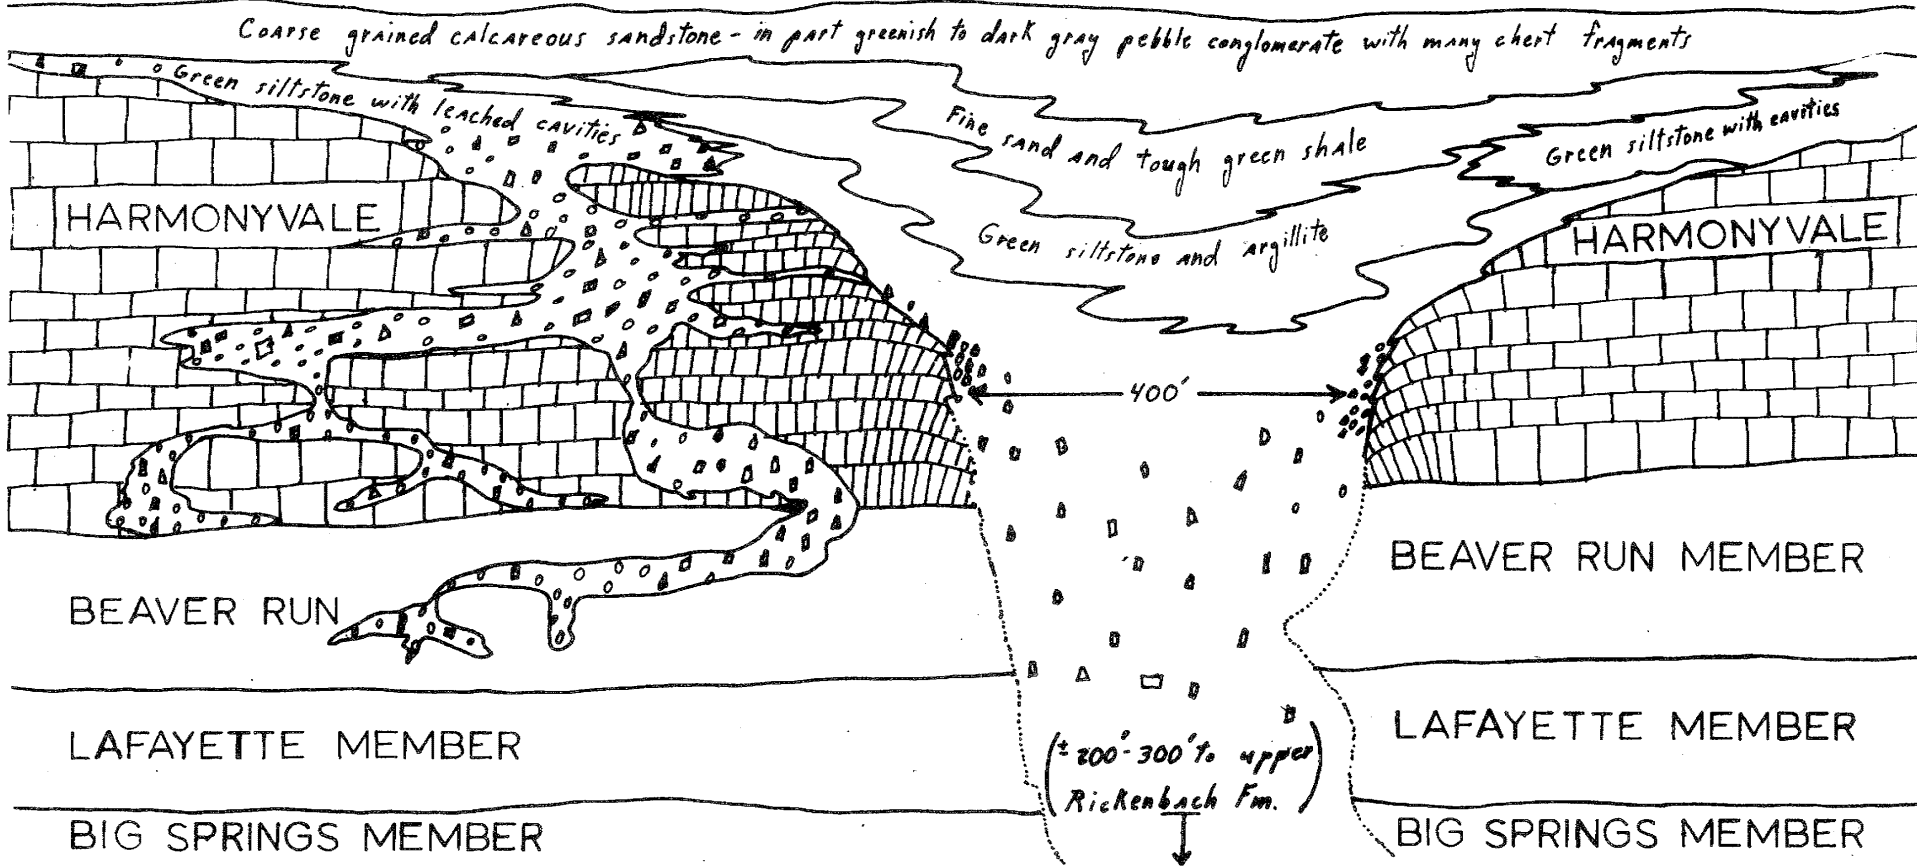 Coarse grained calcareous sandstone - in part greenish to dark gray pebble conglomerate with many chert fragments
Green siltstone with leached cavities
Fine sand and tough green shale
Green siltstone with cavities
HARMONYVALE
Green siltstone and argillite
HARMONYVALE
400'
BEAVER RUN
BEAVER RUN MEMBER
LAFAYETTE MEMBER
LAFAYETTE MEMBER
(± 200'-300' to upper
Rickenbach Fm.)
BIG SPRINGS MEMBER
BIG SPRINGS MEMBER